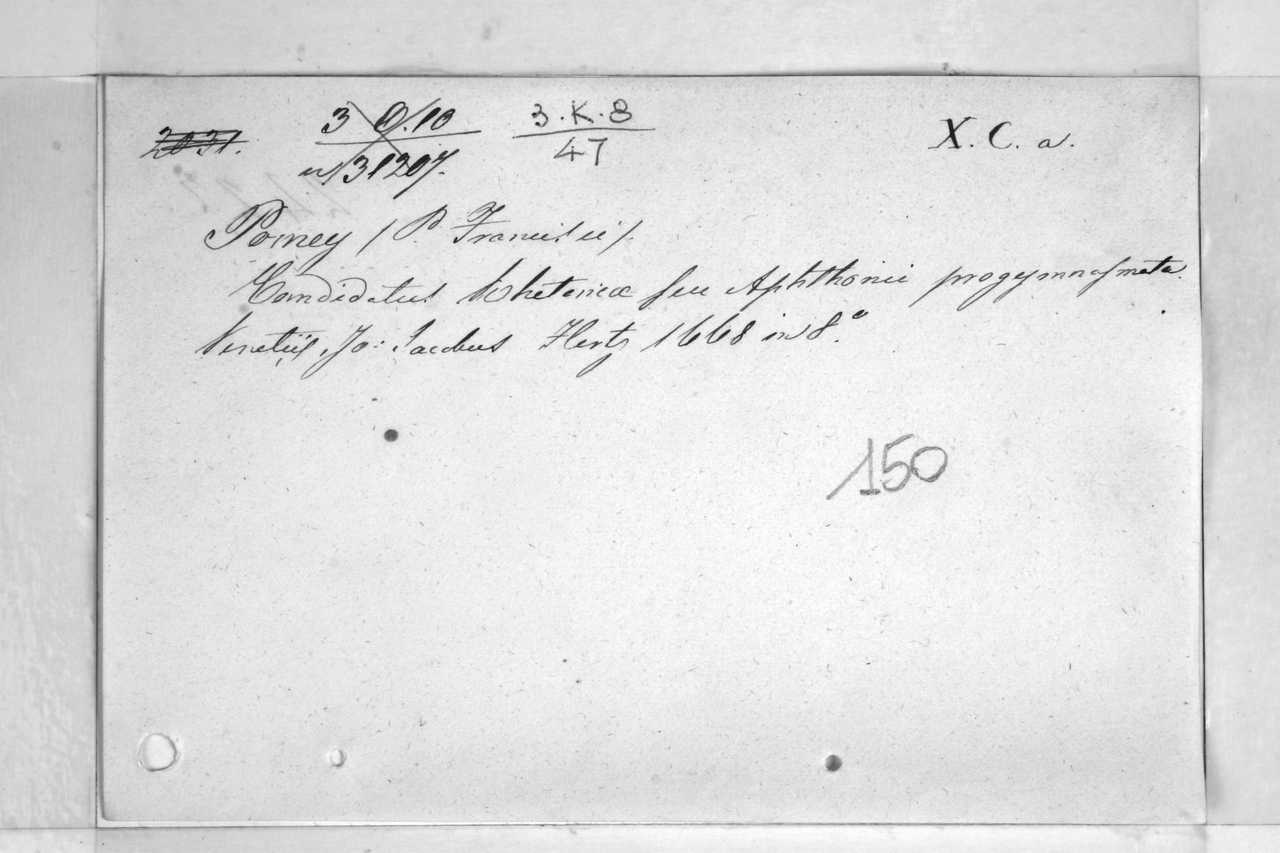 2031. 3 O.10 3.K.8 X.C.a.
n 31207. 47
Pomey (P. Francisci).
Candidatus Rhetoricæ seu Aphthonii progymnasmata.
Venetiis, Jo: Jacobus Hertz 1668 in 8.°
150